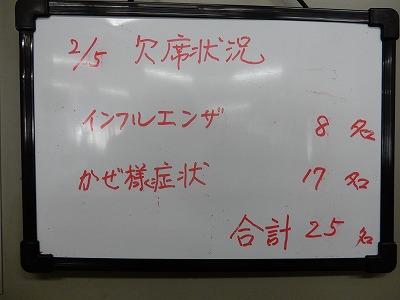 2/5 欠席状況
インフルエンザ 8名
かぜ様症状 17名
合計 25名